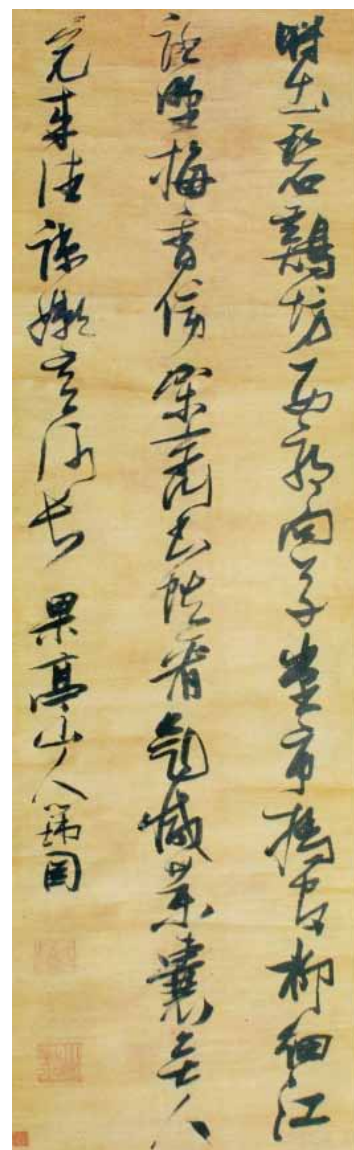 時出碧雞坊西郊向草堂市橋官柳細江
路野梅香傍架齊書帙看題減藥囊無人
覺来往疎嬾意何長 果亭山人瑞图